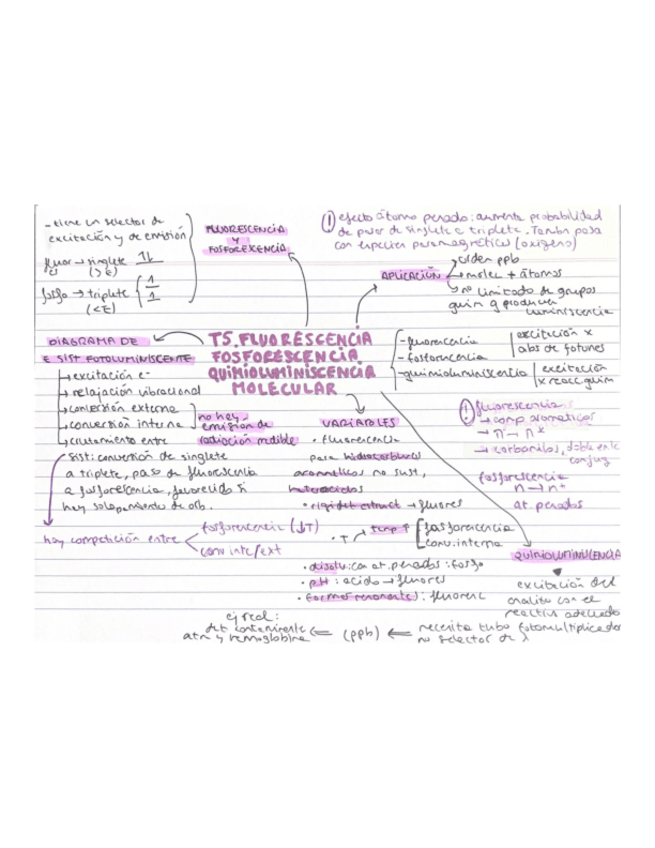 - tiene un selector de
excitación y de emisión
fluor → singlete 1L
(>E)
fosfo → triplete
(<E)
FLUORESCENCIA
Y
FOSFORESCENCIA
! efecto átomo pesado: aumenta probabilidad
de pasar de singlete a triplete. También pasa
con especies paramagnéticas (oxígeno)
APLICACIÓN
orden ppb
molec + átomos
no limitado de grupos
quím q producen
luminiscencia
T5. FLUORESCENCIA
FOSFORESCENCIA
QUIMIOLUMINISCENCIA
MOLECULAR
- fluorescencia
- fosforescencia
- quimioluminiscencia
excitación x
abs de fotones
excitación
x reacc. quím
DIAGRAMA DE
E SIST FOTOLUMINISCENTE
→ excitación e-
→ relajación vibracional
→ conversión externa
→ conversión interna
→ cruzamiento entre
no hay
emisión de
radiación medible
sist: conversión de singlete
a triplete, paso de fluorescencia
a fosforescencia, favorecido si
hay solapamiento de orb.
hay competición entre
fosforescencia (↓T)
conv int/ext
VARIABLES
• fluorescencia
para hidrocarburos
aromáticos no sust,
• rigidez estruct → fluores
• T → temp ↑
fosforescencia
conv. interna
• disolv: con at. pesados: fosfo
• pH: acido → fluores
• formas resonantes: fluoresc
! fluorescencia
→ comp aromáticos
→ π → π*
→ carbonilos, doble enlc
conjug
fosforescencia
n → π*
at. pesados
QUIMIOLUMINISCENCIA
excitación del
analito con el
reactivo adecuado
necesita tubo fotomultiplicador
no selector de λ
(ppb)
ej real:
det contaminante
atm y hemoglobina